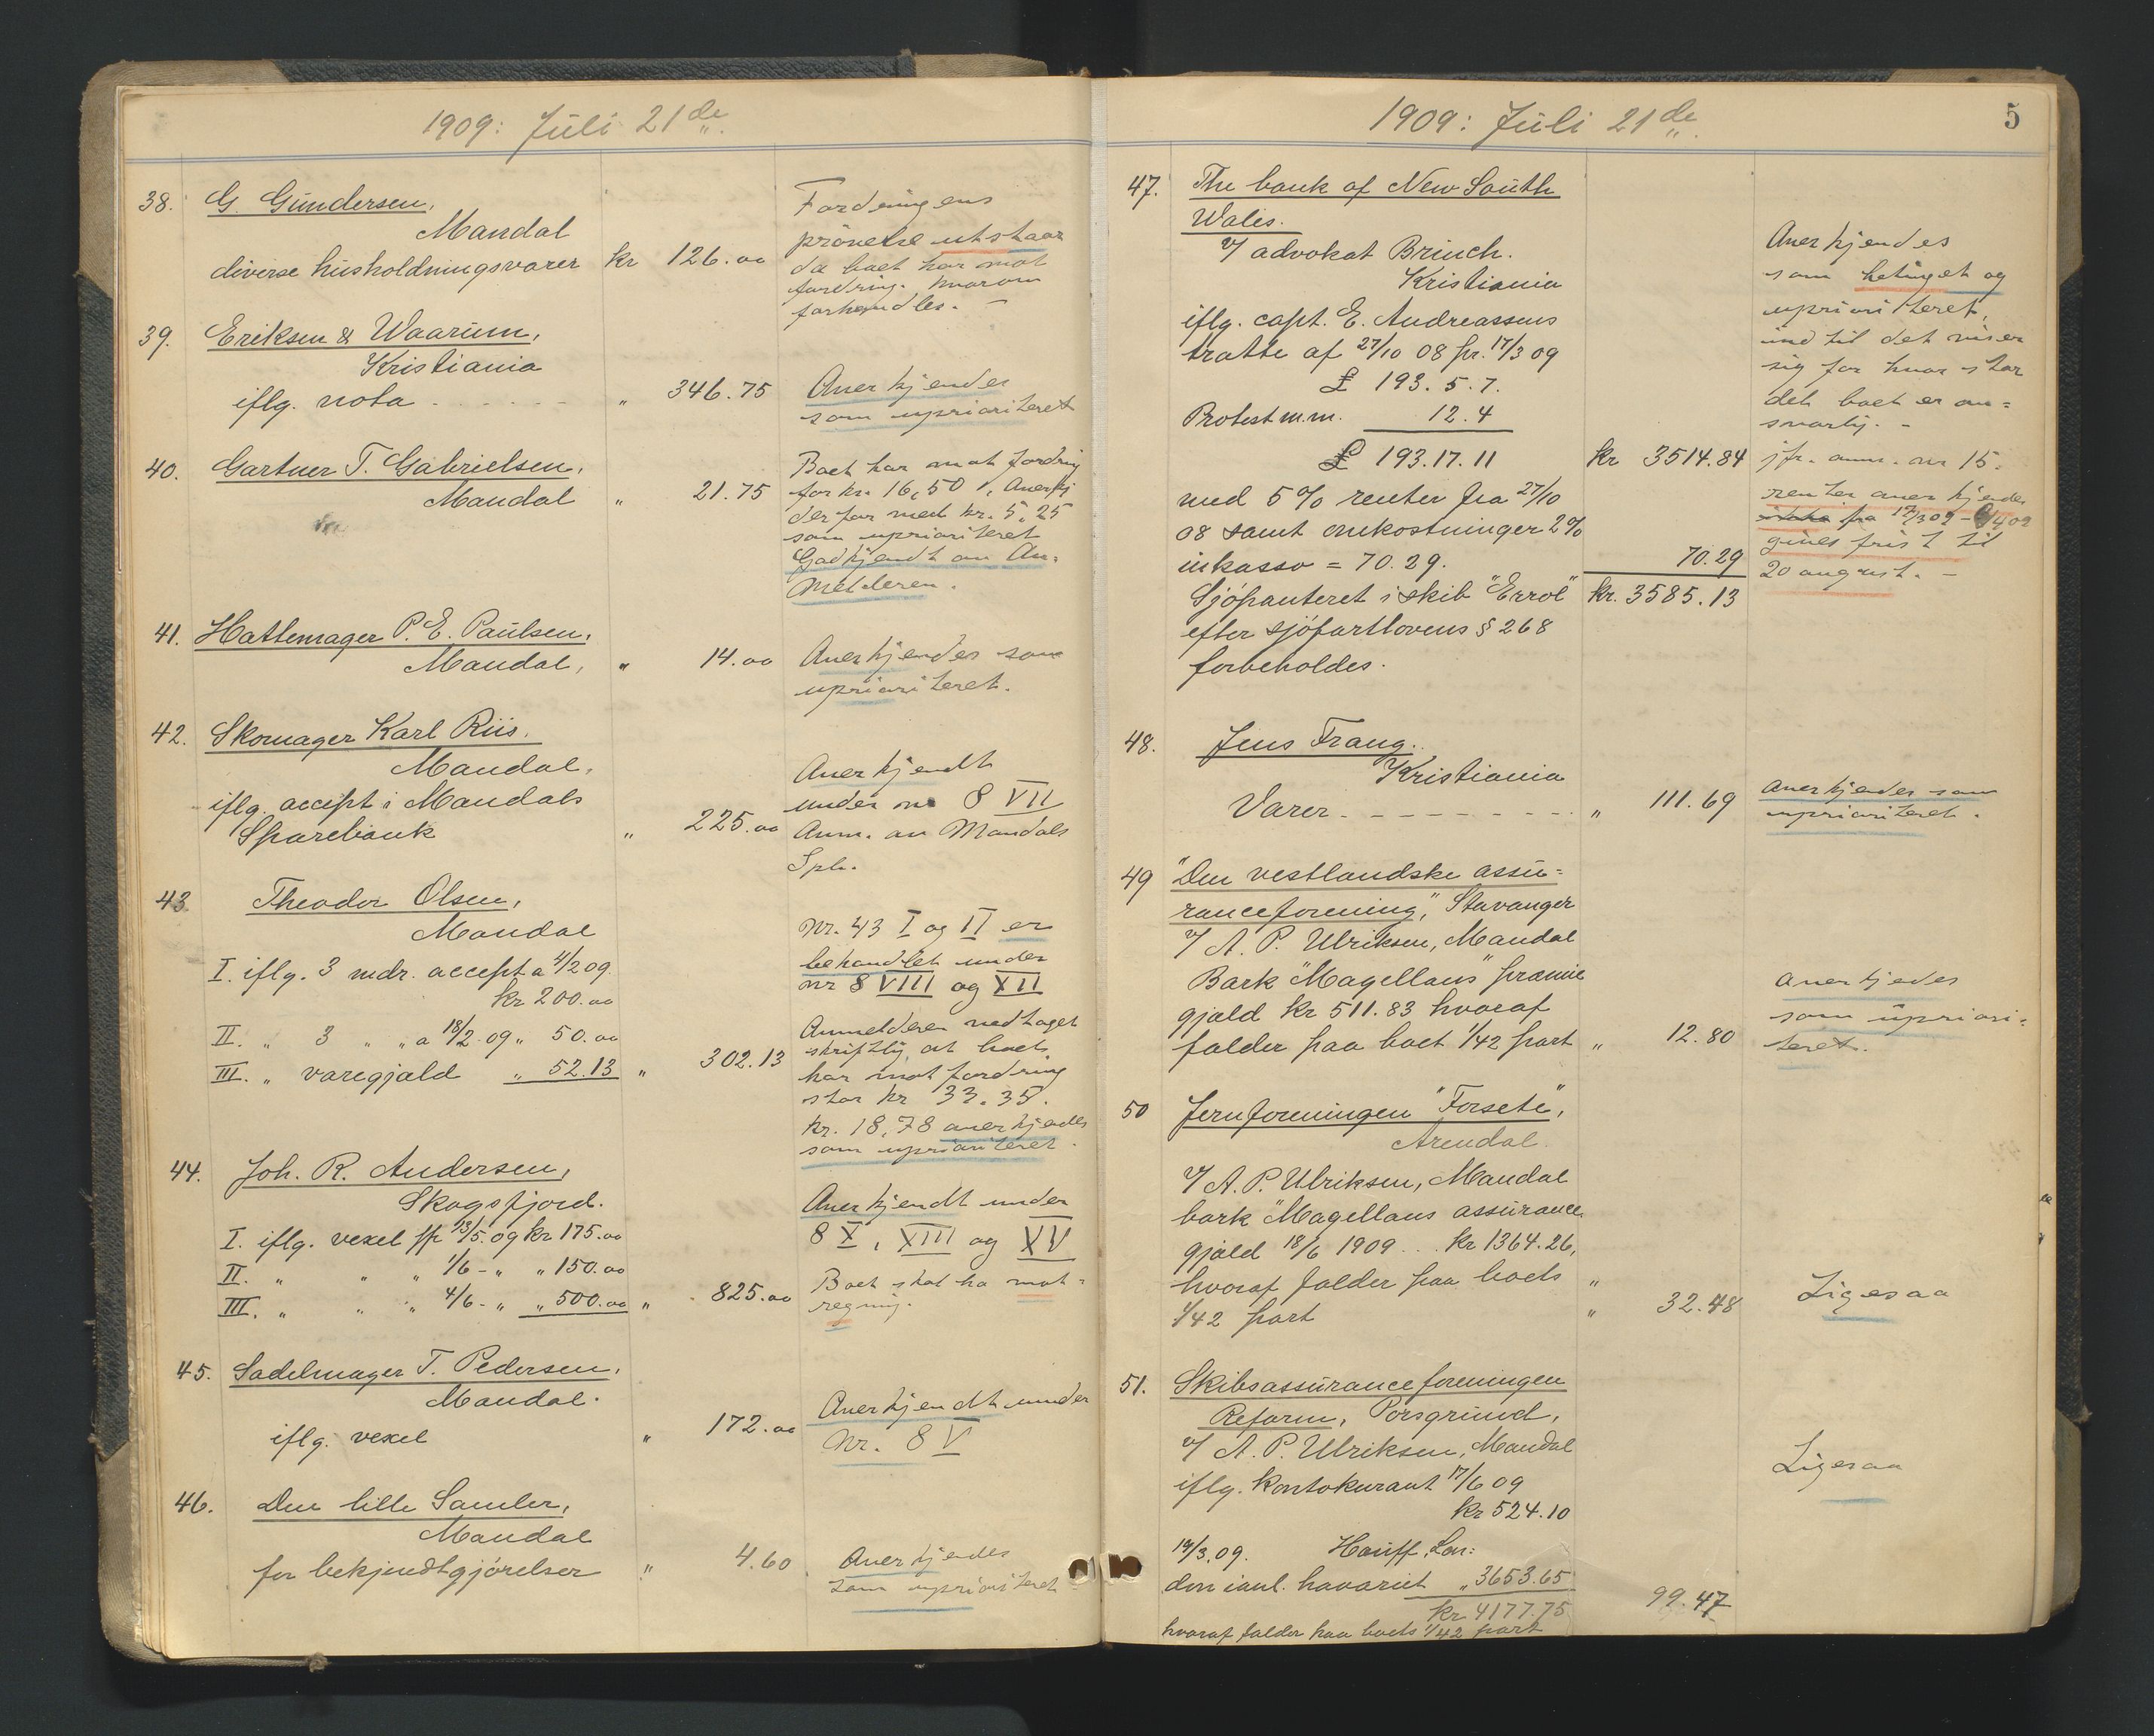 1909: Juli 21de
38. G. Gundersen,
Mandal
diverse husholdningsvarer kr 126.00
Fordringens
prövelse utstaar
da boet har mot
fordring. hvorom
forhandles. –
39. Eriksen & Waarum,
Kristiania
iflg. nota - - - - - „ 346.75
Anerkjendes
som uprioriteret
40. Gartner T. Gabrielsen,
Mandal „ 21.75
Boet har mot fordring
for kr. 16,50, Anerkj
derfor med kr. 5,25
som uprioriteret
Godkjendt av An-
melderen.
41. Hattemager P. E. Paulsen,
Mandal, „ 14.00
Anerkjendes som
uprioriteret.
42. Skomager Karl Riis.
Mandal.
iflg. accept i Mandals
Sparebank „ 225.00
Anerkjendt
under nr 8 VII
Anm. av Mandals
Spb.
43. Theodor Olsen,
Mandal
I. iflg. 3 mdr. accept a 4/2 09.
kr 200.00
II. „ 3 „ „ a 18/2 09 „ 50.00
III. „ varegjæld „ 52.13 „ 302.13
Nr. 43 I og II er
behandlet under
nr 8 VIII og XII
Anmelderen vedtaget
skriftlig, at boet
har mot fordring
stor kr 33.35.
kr. 18,78 anerkjendes
som uprioriteret.
44. Joh. R. Andersen,
Skogsfjord.
I. iflg. vexel pr 13/5 09 kr 175.00
II. „ „ „ 1/6 - „ „ 150.00
III. „ „ „ 4/6 - „ „ 500.00 „ 825.00
Anerkjendt under
8 X, XIII og XV
Boet skal ha mot-
regning.
45. Sadelmager T. Pedersen,
Mandal.
iflg. vexel „ 172.00
Anerkjendt under
Nr. 8 V
46. Den lille Samler,
Mandal
for bekjendtgjörelser „ 4.60
Anerkjendes
som uprioriteret
1909: Juli 21de
5
47. The bank of New South
Wales.
v/ advokat Brinch.
Kristiania
iflg. capt. E. Andreassens
tratte af 27/10 08 pr. 17/3 09
£ 193. 5. 7.
Protest m.m. 12.4
£ 193.17.11 kr 3514.84
med 5% renter fra 27/10
08 samt omkostninger 2%
inkasso = 70.29. 70.29
Sjöpanteret i skib "Errol" kr. 3585.13
efter sjöfartlovens § 268
forbeholdes.
Anerkjendes
som betinget og
uprioriteret,
ind til det viser
sig for hvor stor
del boet er an-
svarlig. –
jfr. anm. nr 15.
renter anerkjendes
ikke fra 17/3 09 –
gives frist til
20 august. –
48. Jens Frang.
Kristiania
Varer - - - - - - - - „ 111.69
anerkjendes som
uprioriteret.
49 "Den vestlandske assu-
ranceforening", Stavanger
v/ A. P. Ulriksen, Mandal
Bark "Magellans" præmie
gjæld kr 511.83 hvoraf
falder paa boet 1/42 part „ 12.80
Anerkjedes
som upriori-
teret.
50 Jernforeningen "Forsete",
Arendal.
v/ A. P. Ulriksen, Mandal
bark "Magellans assurance
gjæld 18/6 1909 . . . kr 1364.26,
hvoraf falder paa boets „
1/42 part „ 32.48
Ligesaa
51. Skibsassuranceforeningen
Reform, Porsgrund,
v/ A. P. Ulriksen, Mandal
iflg. Kontokurant 17/6 09
kr 524.10
19/3.09. Lon:
don havariet „ 3653.65
kr 4177.75
hvoraf falder paa boets 1/42 part 99.47
Ligesaa